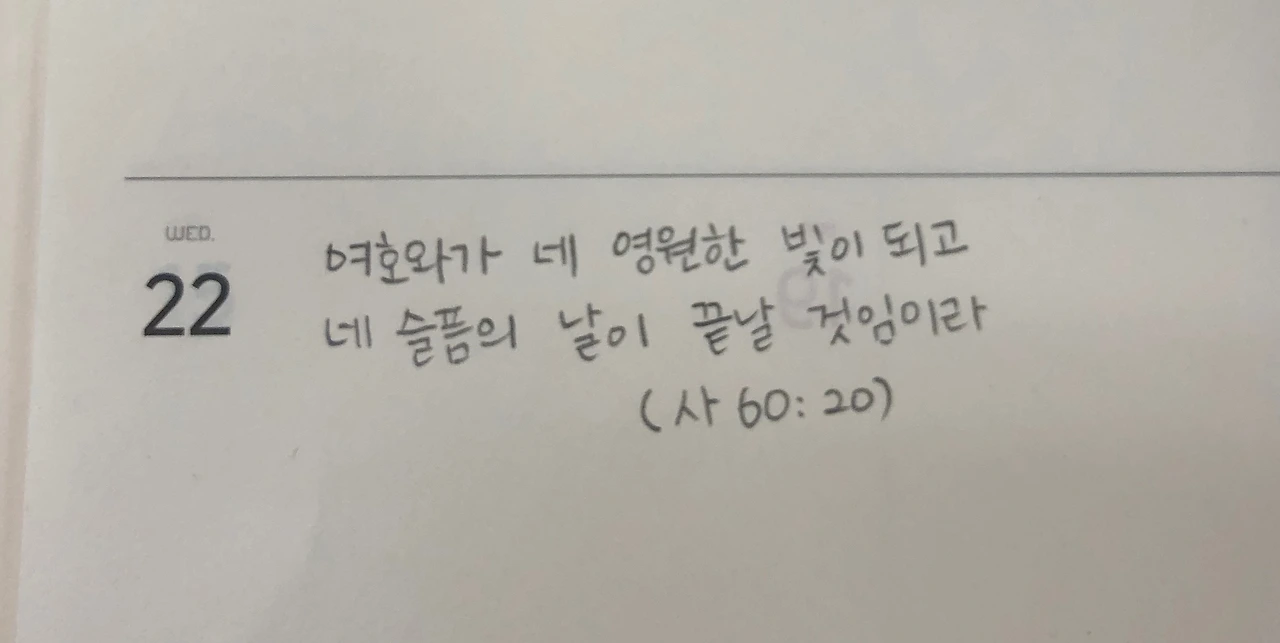 WED.
22
여호와가 네 영원한 빛이 되고
네 슬픔의 날이 끝날 것임이라
(사 60:20)